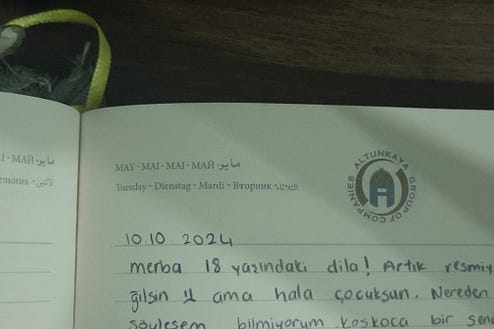 MAY • MAI • MAI • МАЙ • مايو
Tuesday • Dienstag • Mardi • Вторник • الثلاثاء
ALTUNKAYA GROUP OF COMPANIES
10.10 2024
merba 18 yaşındaki dila! Artık resmiy
ğilsin ama hala çocuksun. Nereden
söylesem bilmiyorum koskoca bir sene